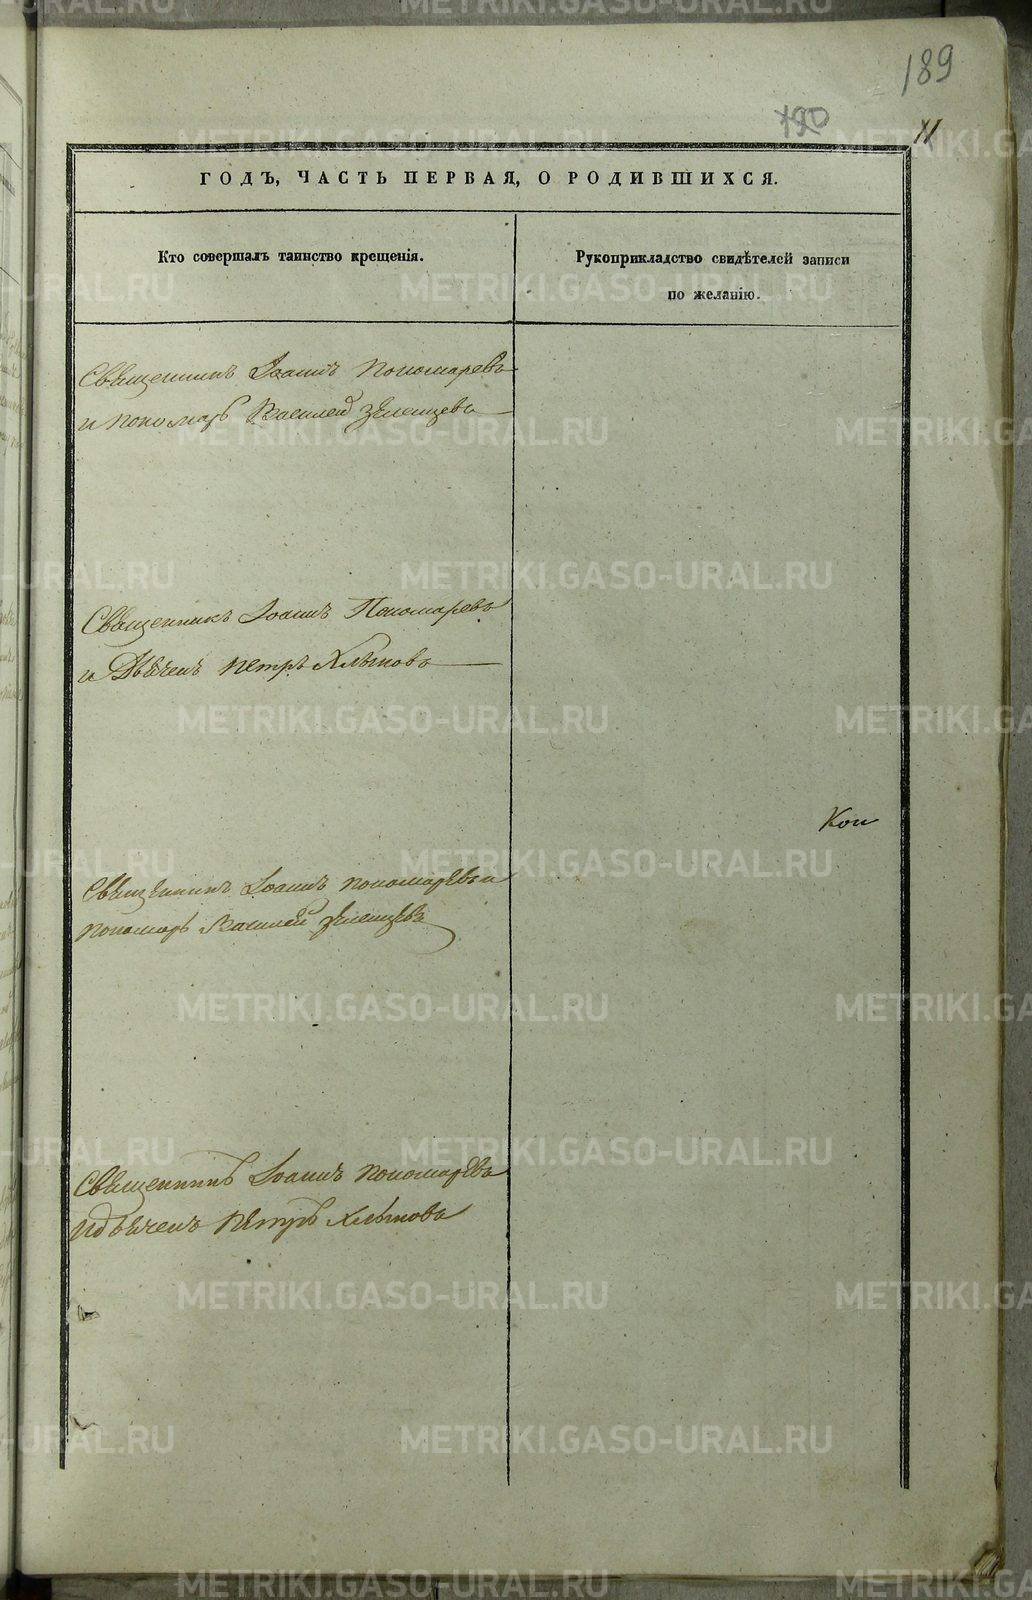 189
120
11
ГОДЪ, ЧАСТЬ ПЕРВАЯ, О РОДИВШИХСЯ.
Кто совершалъ таинство крещенія.
Рукоприкладство свидѣтелей записи
по желанію.
Священникъ Іоаннъ Пономаревъ
и пономарь Василей Зеленцевъ
Священникъ Іоаннъ Пономаревъ
и Дьячекъ Петръ Хлыновъ
Кои
Священникъ Іоаннъ Пономаревъ и
пономарь Василей Зеленцевъ
Священникъ Іоаннъ Пономаревъ
и дьячекъ Петръ Хлыновъ
METRIKI.GASO-URAL.RU